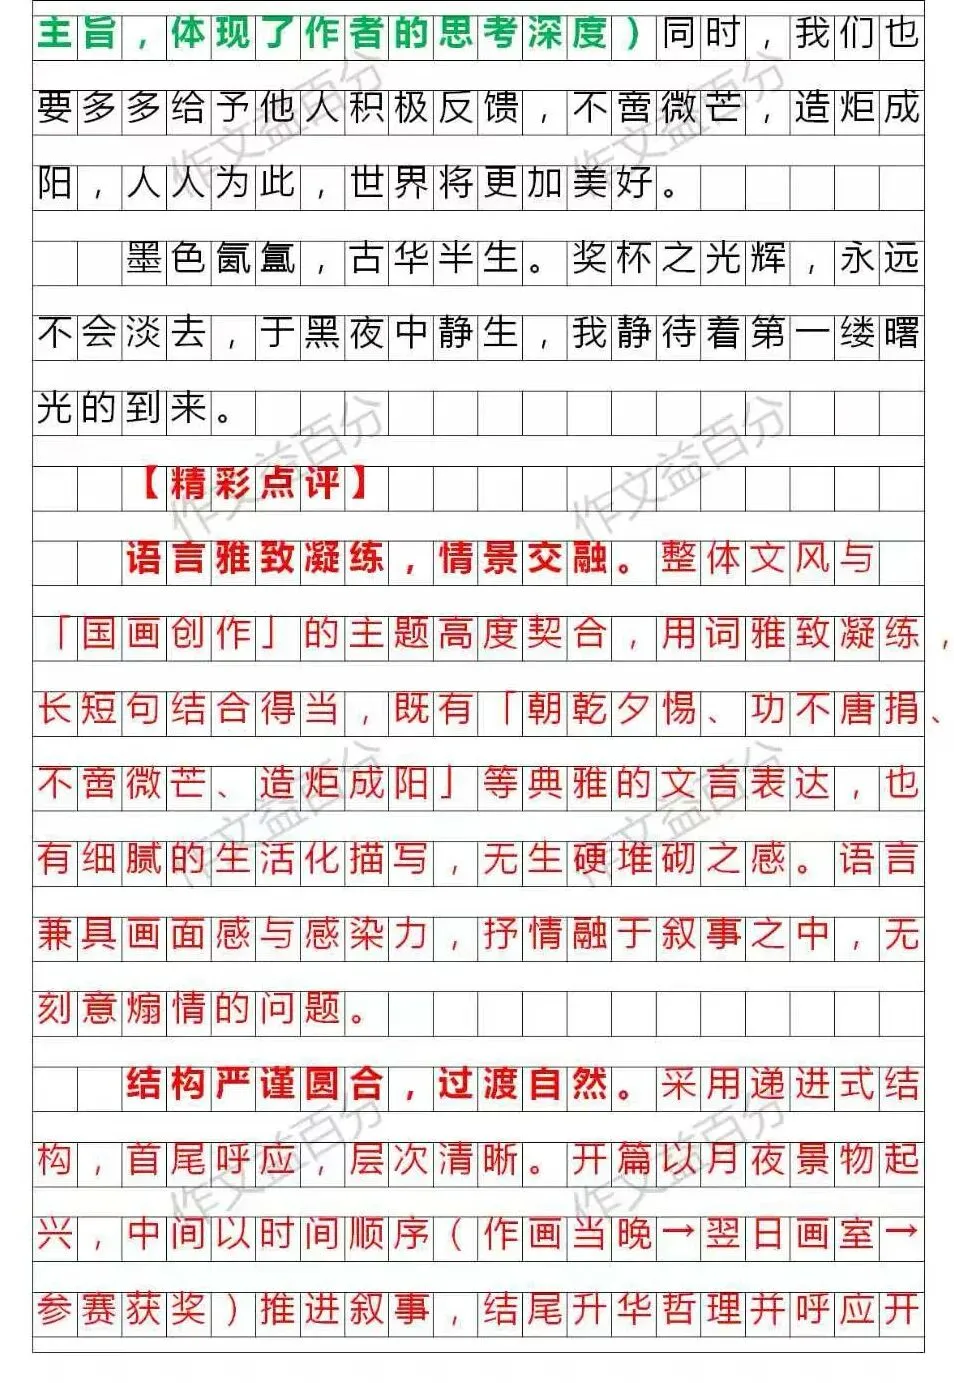 主旨，体现了作者的思考深度）同时，我们也
要多多给予他人积极反馈，不啻微芒，造炬成
阳，人人为此，世界将更加美好。
墨色氤氲，古华半生。奖杯之光辉，永远
不会淡去，于黑夜中静生，我静待着第一缕曙
光的到来。
【精彩点评】
语言雅致凝练，情景交融。整体文风与
「国画创作」的主题高度契合，用词雅致凝练，
长短句结合得当，既有「朝乾夕惕、功不唐捐、
不啻微芒、造炬成阳」等典雅的文言表达，也
有细腻的生活化描写，无生硬堆砌之感。语言
兼具画面感与感染力，抒情融于叙事之中，无
刻意煽情的问题。
结构严谨圆合，过渡自然。采用递进式结
构，首尾呼应，层次清晰。开篇以月夜景物起
兴，中间以时间顺序（作画当晚→翌日画室→
参赛获奖）推进叙事，结尾升华哲理并呼应开
作文益百分
作文益百分
作文益百分
作文益百分
作文益百分
作文益百分
作文益百分
作文益百分